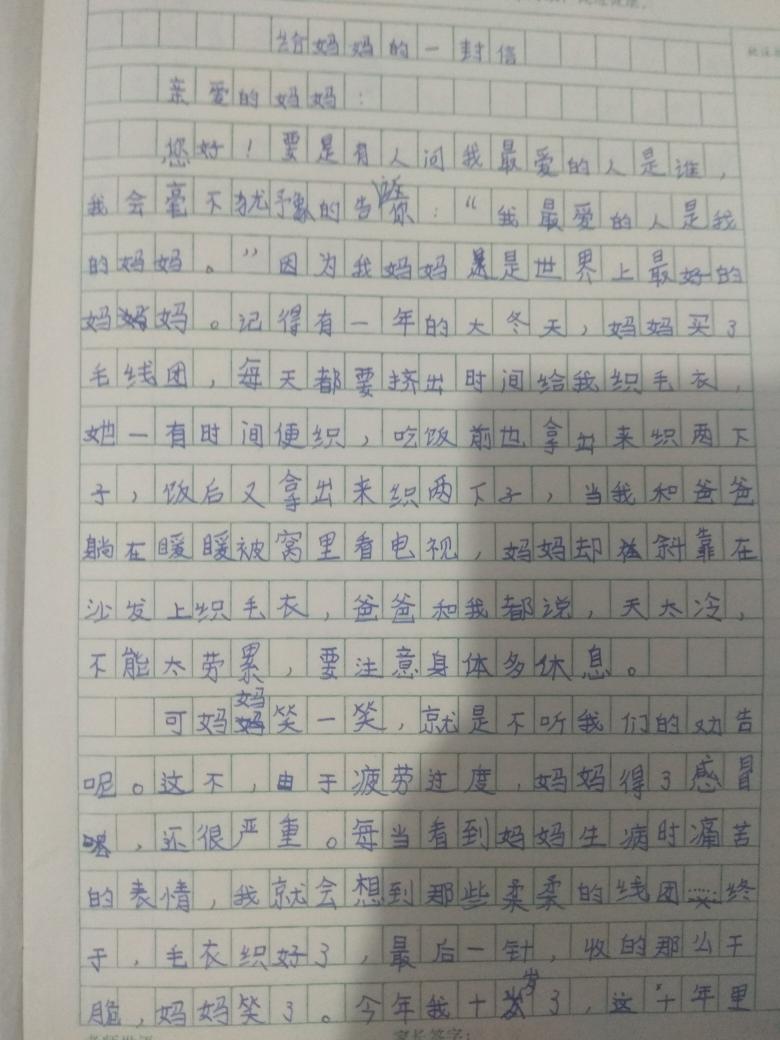 给妈妈的一封信
亲爱的妈妈：
您好！要是有人问我最爱的人是谁，
我会毫不犹豫的告诉你：“我最爱的人是我
的妈妈。”因为我妈妈是世界上最好的
妈妈。记得有一年的大冬天，妈妈买了
毛线团，每天都要挤出时间给我织毛衣，
她一有时间便织，吃饭前也拿出来织两下
子，饭后又拿出来织两下子，当我和爸爸
躺在暖暖被窝里看电视，妈妈却斜靠在
沙发上织毛衣，爸爸和我都说，天太冷，
不能太劳累，要注意身体多休息。
可妈妈笑一笑，就是不听我们的劝告
呢。这不，由于疲劳过度，妈妈得了感冒
，还很严重。每当看到妈妈生病时痛苦
的表情，我就会想到那些柔柔的线团……终
于，毛衣织好了，最后一针，收的那么干
脆，妈妈笑了。今年我十岁了，这十年里
家长签字：